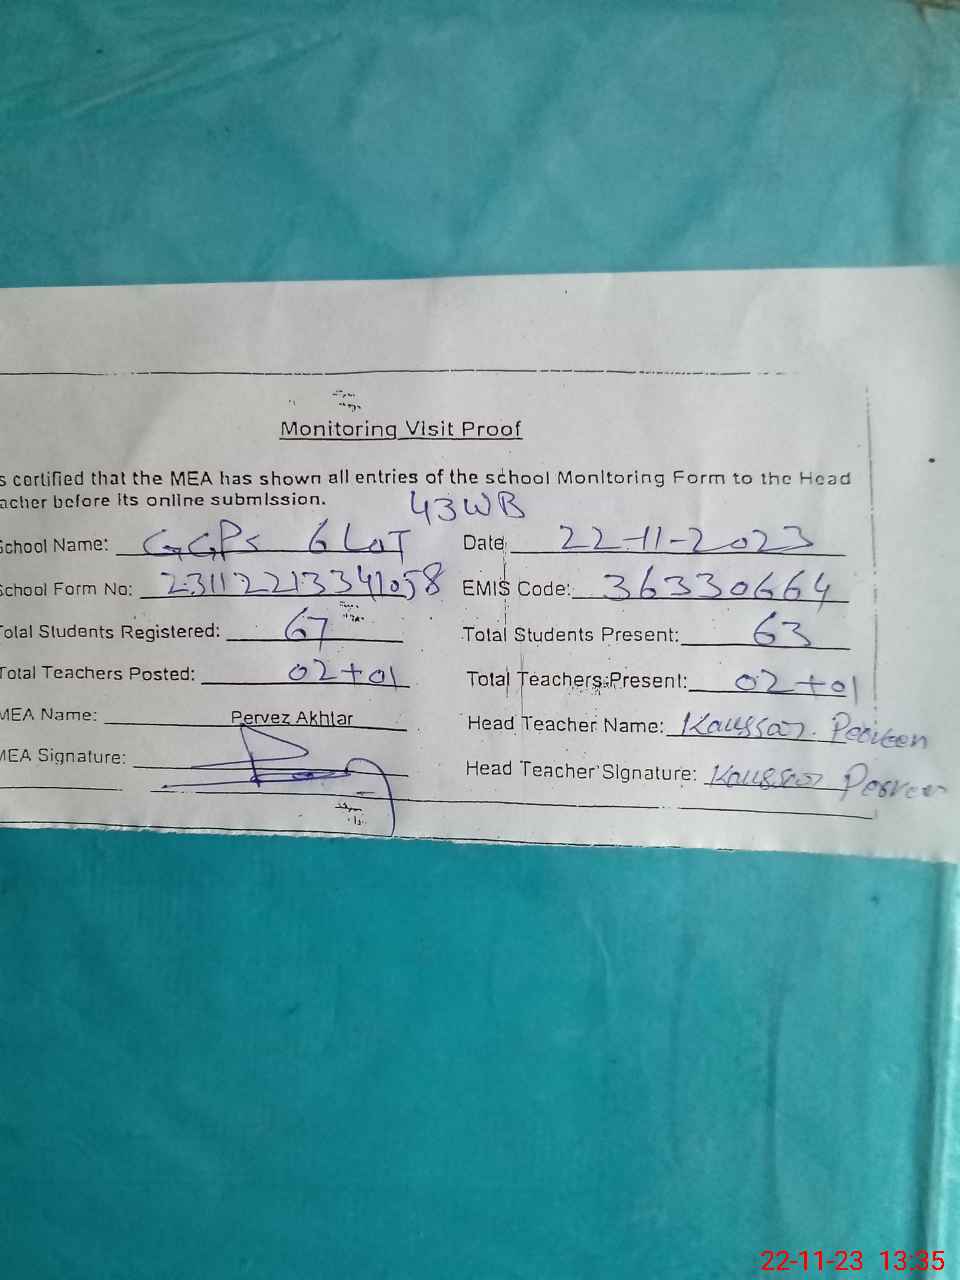 Monitoring Visit Proof
s certified that the MEA has shown all entries of the school Monitoring Form to the Head
acher before its online submission.
43WB
School Name: GGPS 6 LOT Date 22-11-2023
School Form No: 23112213341058 EMIS Code: 36330664
Total Students Registered: 67 Total Students Present: 63
Total Teachers Posted: 02+01 Total Teachers Present: 02+01
MEA Name: Pervez Akhtar Head Teacher Name: Kaussar Perveen
MEA Signature: Head Teacher Signature: Kaussar Perveen
22-11-23 13:35